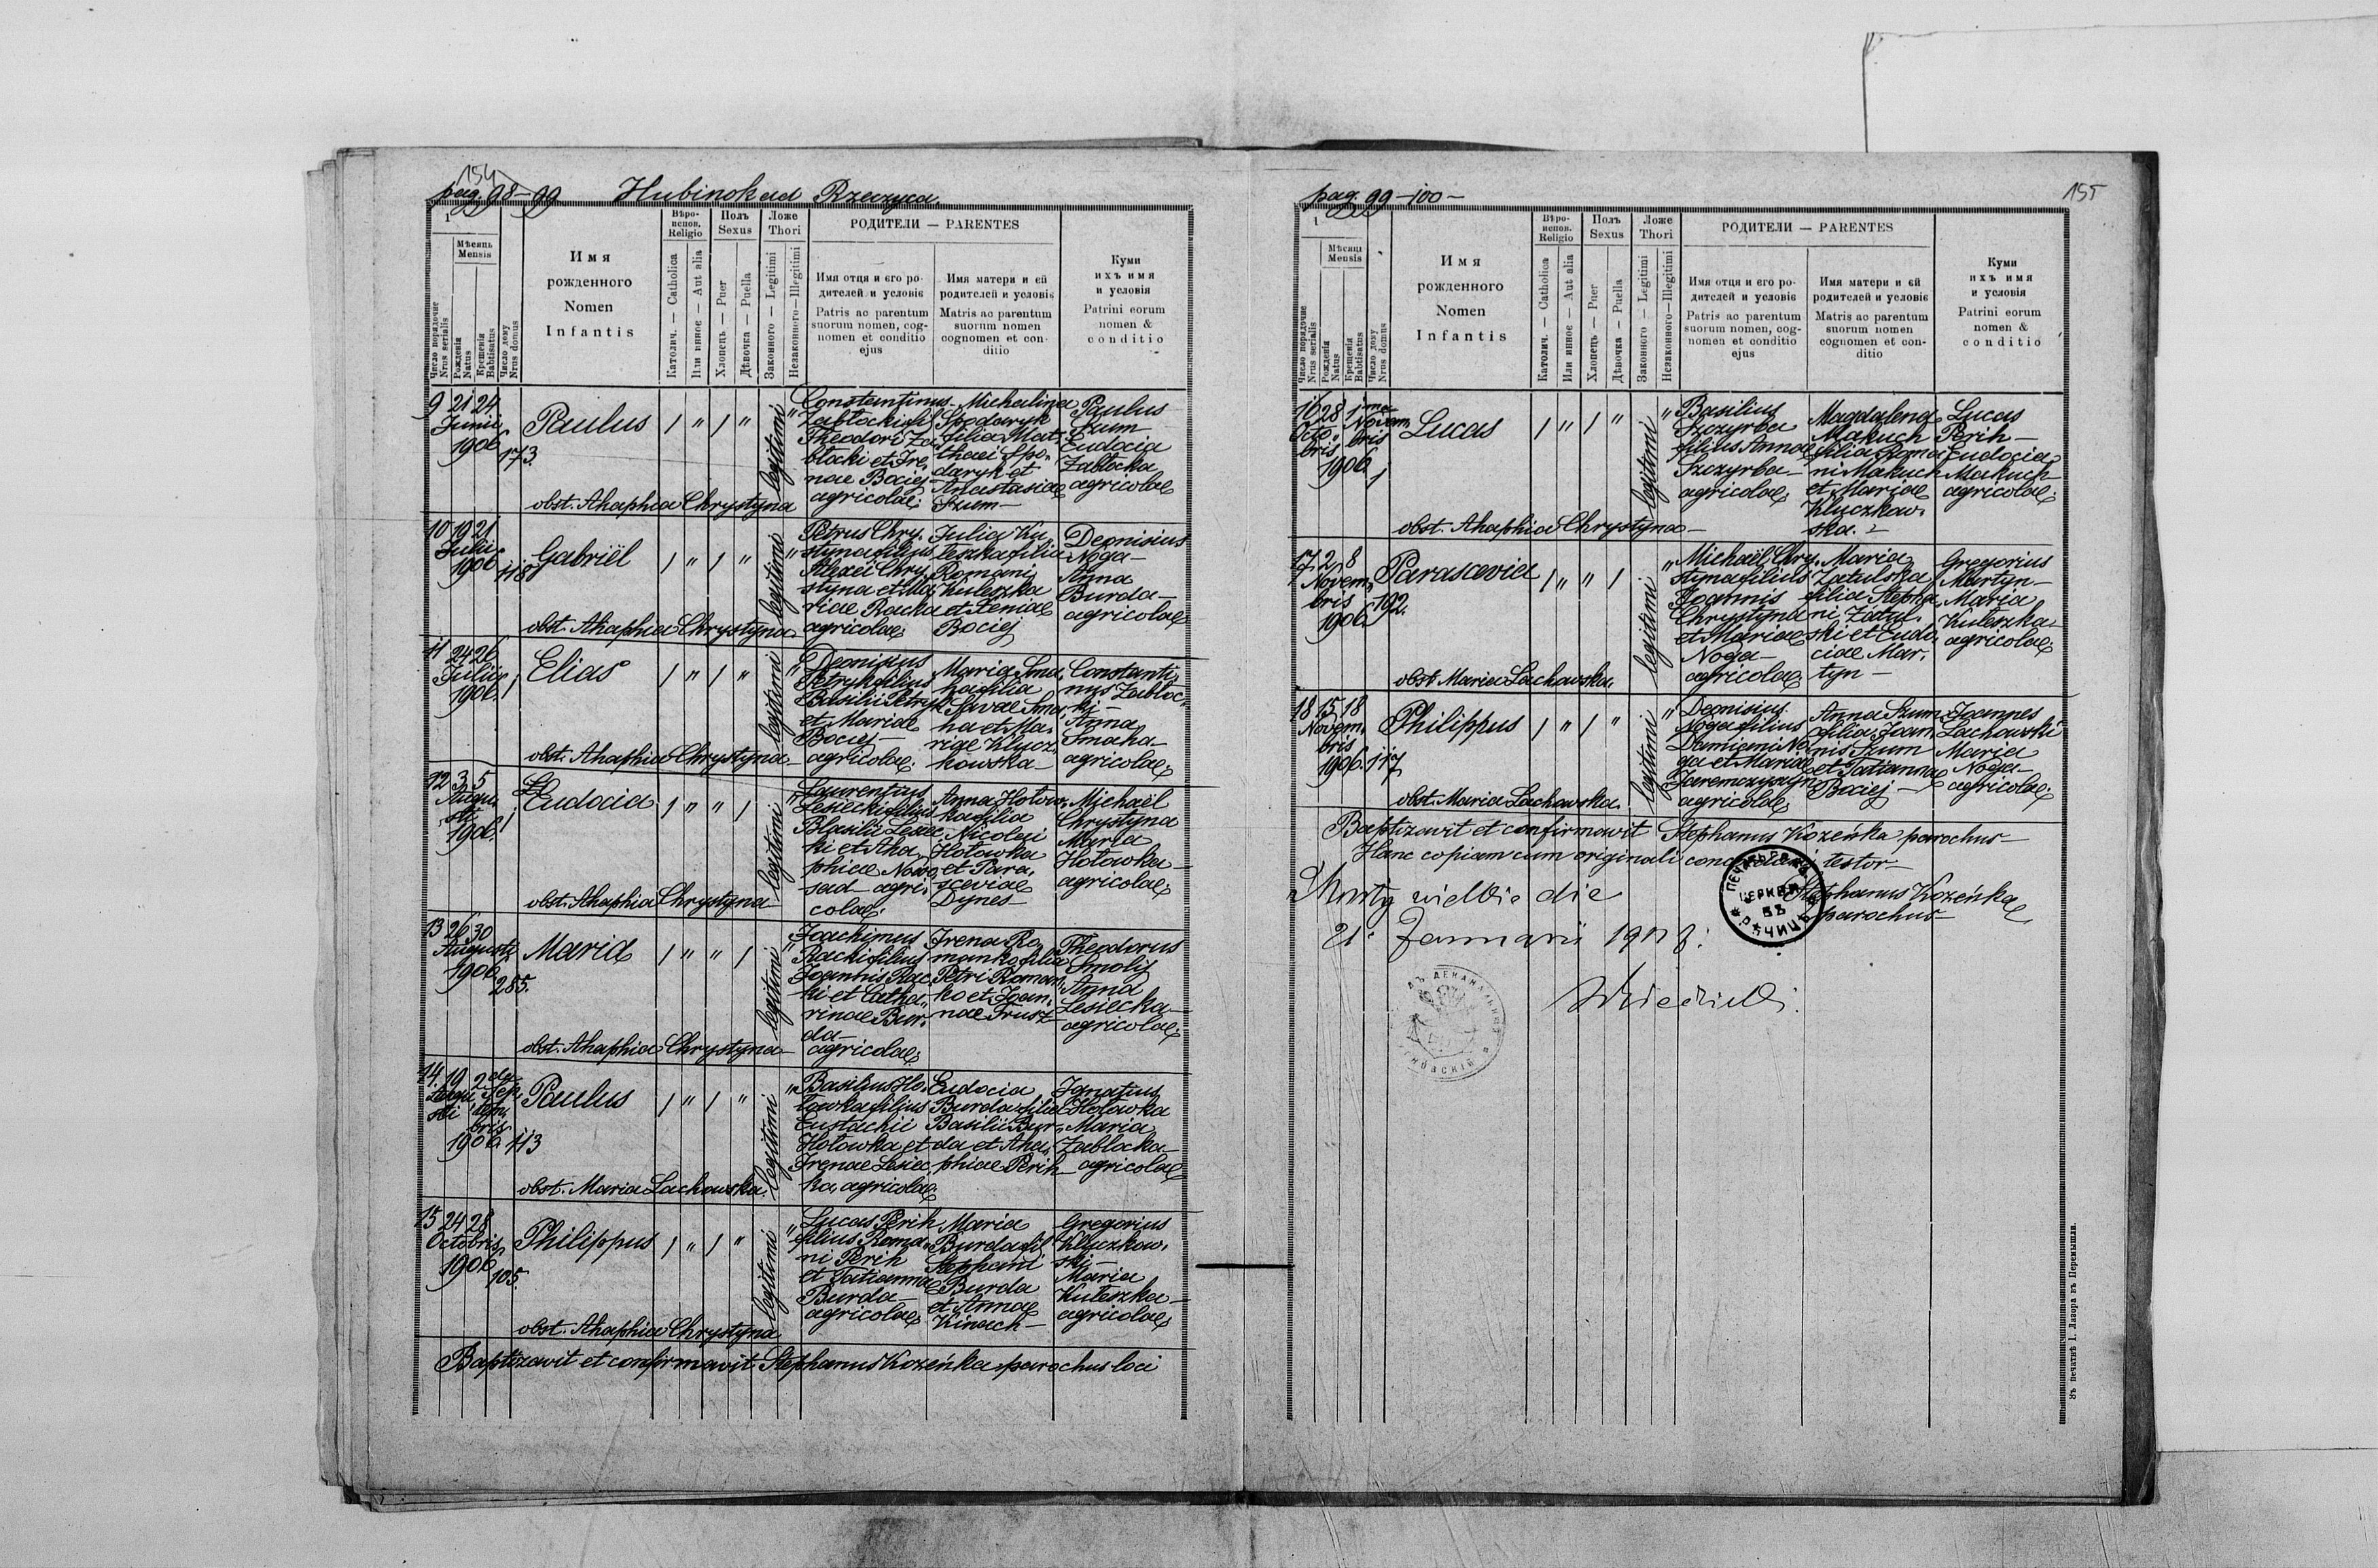 154
pag. 98-99 Hubinok ad Rzeczyca.
1
Мѣсяць
Mensis
Число порядочне
Nrus serialis
Рожденія
Natus
Крещенія
Babtisatus
Число дому
Nrus domus
Имя
рожденного
Nomen
Infantis
Вѣро-
испов.
Religio
Католич. — Catholica
Или инное — Aut alia
Полъ
Sexus
Хлопецъ — Puer
Дѣвочка — Puella
Ложе
Thori
Законного — Legitimi
Незаконного — Illegitimi
РОДИТЕЛИ — PARENTES
Имя отця и его ро-
дителей и условіє
Patris ac parentum
suorum nomen, cog-
nomen et conditio
ejus
Имя матери и єй
родителей и условіє
Matris ac parentum
suorum nomen
cognomen et con-
ditio
Куми
ихъ имя
и условія
Patrini eorum
nomen &
conditio
9 21 24
Junii
1906
173.
Paulus / " / "
legitimi "
obst. Ahaphia Chrystyna
Constantinus
Zabłocki fil.
Theodori Za-
błocki et Ire-
nae Bociej
agricolae
Michalina
Spodaryk
filia Mat-
thaei Spo-
daryk et
Anastasiae
Szum-
Paulus
Szum
Eudocia
Zabłocka
agricolae
10 19 21
Julii
1906
118
Gabriël / " / "
legitimi "
obst. Ahaphia Chrystyna
Petrus Chry-
styna filius
Alexii Chry-
styna et Ma-
riae Racka
agricolae
Julia Ku-
leszka filia
Romani
Kuleszka
et Xeniae
Bociej
Deonisius
Noga-
Anna
Burda-
agricolae
11 24 26
Julii
1906
1
Elias / " / "
legitimi "
obst. Ahaphia Chrystyna
Deonisius
Petryk filius
Basilii Petryk
et Mariae
Bociej-
agricolae
Maria Sma-
ha filia
Savae Sma-
ha et Ma-
riae Klucz-
kowska-
Constanti-
nus Zabloc-
ki-
Anna
Smaha-
agricolae
12 3 5
Augu-
sti
1906
1
Eudocia / " " /
legitimi "
obst. Ahaphia Chrystyna
Laurentius
Lesiecki filius
Blasii Lesiec-
ki et Aha-
phiae Nowo-
sad- agri-
colae
Anna Hołow-
ka filia
Nicolai
Hołowka
et Para-
sceviae
Dynes-
Michaël
Chrystyna
Maria
Hołowka-
agricolae
13 26 30
Augusti
1906
285.
Maria / " " /
legitimi "
obst. Ahaphia Chrystyna-
Joachimus
Racki filius
Joannis Rac-
ki et Catha-
rinae Bur-
da-
agricolae
Irena Ro-
manko filia
Petri Roman-
ko et Joan-
nae Trusz-
Theodorus
Smolij
Anna
Lesiecka-
agricolae
14 19 2da
Augu- Sep-
sti tem-
bris
1906 113
Paulus / " / "
legitimi "
obst. Maria Lachowska
Basilius Ho-
łowka filius
Eustachii
Hołowka et
Irenae Lesiec-
ka, agricolae
Eudocia
Burda filia
Basilii Bur-
da et Aha-
phiae Perih
Ignatius
Hołowka
Maria
Zablocka-
agricolae
15 24 28
Octobris
1906
105.
Philippus / " / "
legitimi "
obst. Ahaphia Chrystyna
Lucas Perih
filius Roma-
ni Perih
et Tatiannae
Burda-
agricolae
Maria
Burda fil.
Stephani
Burda
et Annae
Kinach-
Gregorius
Kluczkow-
ski-
Maria
Kuleszka-
agricolae
Baptizavit et confirmavit Stephanus Kozeńka parochus loci
155
pag. 99-100-
1
Мѣсяць
Mensis
Число порядочне
Nrus serialis
Рожденія
Natus
Крещенія
Babtisatus
Число дому
Nrus domus
Имя
рожденного
Nomen
Infantis
Вѣро-
испов.
Religio
Католич. — Catholica
Или инное — Aut alia
Полъ
Sexus
Хлопецъ — Puer
Дѣвочка — Puella
Ложе
Thori
Законного — Legitimi
Незаконного — Illegitimi
РОДИТЕЛИ — PARENTES
Имя отця и его ро-
дителей и условіє
Patris ac parentum
suorum nomen, cog-
nomen et conditio
ejus
Имя матери и єй
родителей и условіє
Matris ac parentum
suorum nomen
cognomen et con-
ditio
Куми
ихъ имя
и условія
Patrini eorum
nomen &
conditio
16 28 1ma
Octo- Novem-
bris bris
1906 1
Lucas / " / "
legitimi "
obst. Ahaphia Chrystyna-
Basilius
Szczyrba
filius Annae
Szczyrba-
agricolae
Magdalena
Makuch
filia Roma-
ni Makuch
et Mariae
Kluczkow-
ska.-
Lucas
Perih-
Eudocia
Makuch-
agricolae
17 2 8
Novem-
bris 192.
1906
Parascevia / " " /
legitimi "
obst. Maria Lachowska.
Michaël Chry-
styna filius
Joannis
Chrystyna
et Mariae
Noga-
agricolae
Maria
Zatulska
filia Stepha-
ni Zatul-
ski et Eudo-
ciae Mar-
tyn-
Gregorius
Martyn-
Maria
Kuleszka-
agricolae
18 15 18
Novem-
bris
1906. 117
Philippus / " / "
legitimi "
obst. Maria Lachowska.
Deonisius
Noga filius
Damiani No-
ga et Mariae
Jaremczyszyn
agricolae
Anna Szum
filia Joan-
nis Szum
et Tatiannae
Bociej-
Joannes
Lachowski
Maria
Noga-
agricolae
Baptizavit et confirmavit Stephanus Kozeńka parochus-
Hanc copiam cum originali testor-
Stephanus Kozeńka
parochus
die
21. Januarii 190
ЦЕРКВИ
ВЪ
ДЕКАНАЛЬНЫЙ
Зъ печатнѣ І. Лазора въ Перемышли.